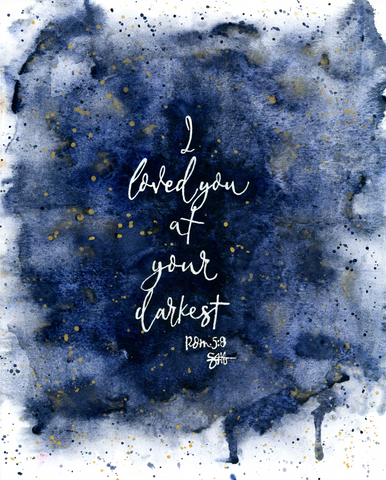 I
loved you
at
your
darkest
Rom.5:8